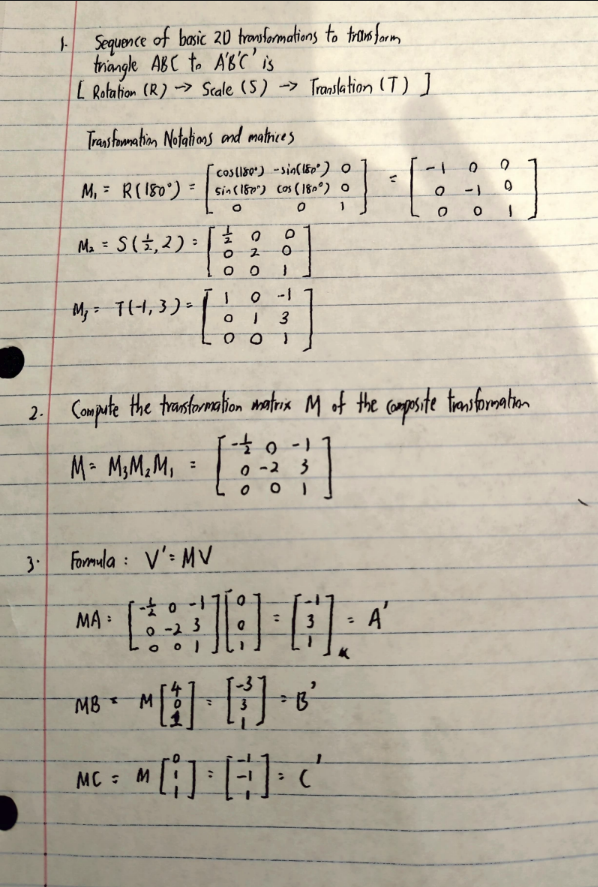 1. Sequence of basic 2D transformations to transform
triangle ABC to A'B'C' is
[ Rotation (R) → Scale (S) → Translation (T) ]
Transformation Notations and matrices
M₁ = R(180°) = [cos(180°) -sin(180°) 0; sin(180°) cos(180°) 0; 0 0 1] = [-1 0 0; 0 -1 0; 0 0 1]
M₂ = S(½, 2) = [½ 0 0; 0 2 0; 0 0 1]
M₃ = T(-1, 3) = [1 0 -1; 0 1 3; 0 0 1]
2. Compute the transformation matrix M of the composite transformation
M = M₃M₂M₁ = [-½ 0 -1; 0 -2 3; 0 0 1]
3. Formula : V' = MV
MA = [-½ 0 -1; 0 -2 3; 0 0 1] [0; 0; 1] = [-1; 3; 1] = A'
MB = M [4; 0; 1] = [-3; 3; 1] = B'
MC = M [0; 1; 1] = [-1; -1; 1] = C'